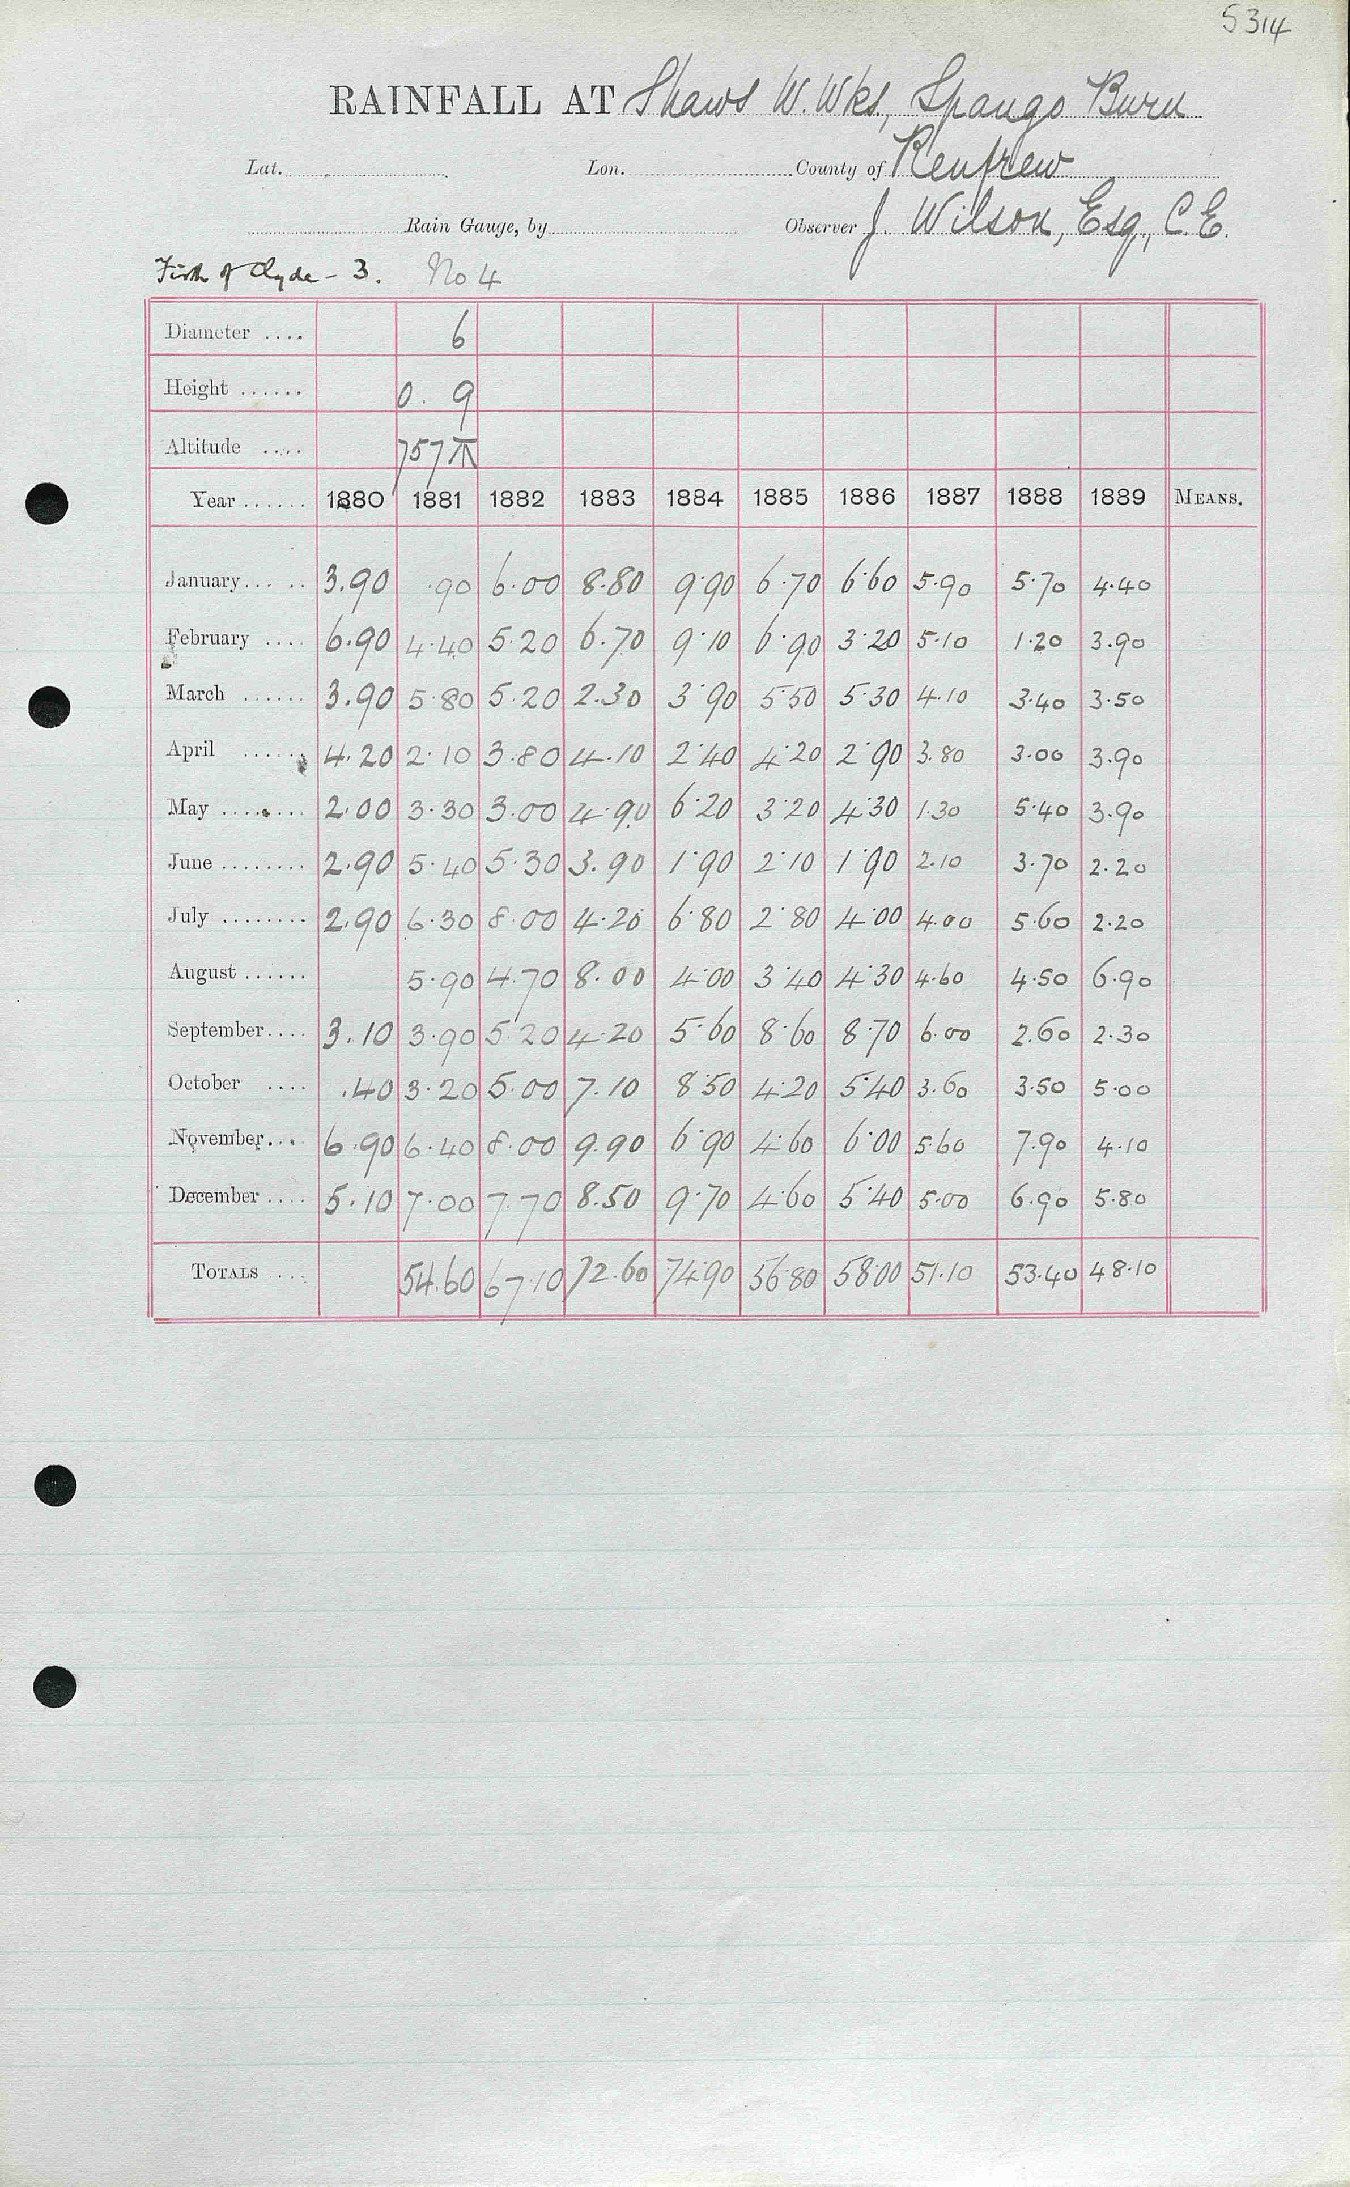 5314
RAINFALL AT Shaws W. Wks, Spango Burn
Lat. Lon. County of Renfrew
Rain Gauge, by Observer J. Wilson, Esq., C.E.
Firth of Clyde - 3. No 4
Diameter .... 6
Height ...... 0. 9
Altitude .... 757
Year ...... 1880 1881 1882 1883 1884 1885 1886 1887 1888 1889 MEANS.
January.... .. 3.90 .90 6.00 8.80 9.90 6.70 6.60 5.90 5.70 4.40
February .... 6.90 4.40 5.20 6.70 9.10 6.90 3.20 5.10 1.20 3.90
March ...... 3.90 5.80 5.20 2.30 3.90 5.50 5.30 4.10 3.40 3.50
April ...... 4.20 2.10 3.80 4.10 2.40 4.20 2.90 3.80 3.00 3.90
May ........ 2.00 3.30 3.00 4.90 6.20 3.20 4.30 1.30 5.40 3.90
June ........ 2.90 5.40 5.30 3.90 1.90 2.10 1.90 2.10 3.70 2.20
July ........ 2.90 6.30 8.00 4.20 6.80 2.80 4.00 4.00 5.60 2.20
August ...... 5.90 4.70 8.00 4.00 3.40 4.30 4.60 4.50 6.90
September.... 3.10 3.90 5.20 4.20 5.60 8.60 8.70 6.00 2.60 2.30
October .... .40 3.20 5.00 7.10 8.50 4.20 5.40 3.60 3.50 5.00
November.... 6.90 6.40 8.00 9.90 6.90 4.60 6.00 5.60 7.90 4.10
December .... 5.10 7.00 7.70 8.50 9.70 4.60 5.40 5.00 6.90 5.80
TOTALS .... 54.60 67.10 72.60 74.90 56.80 58.00 51.10 53.40 48.10